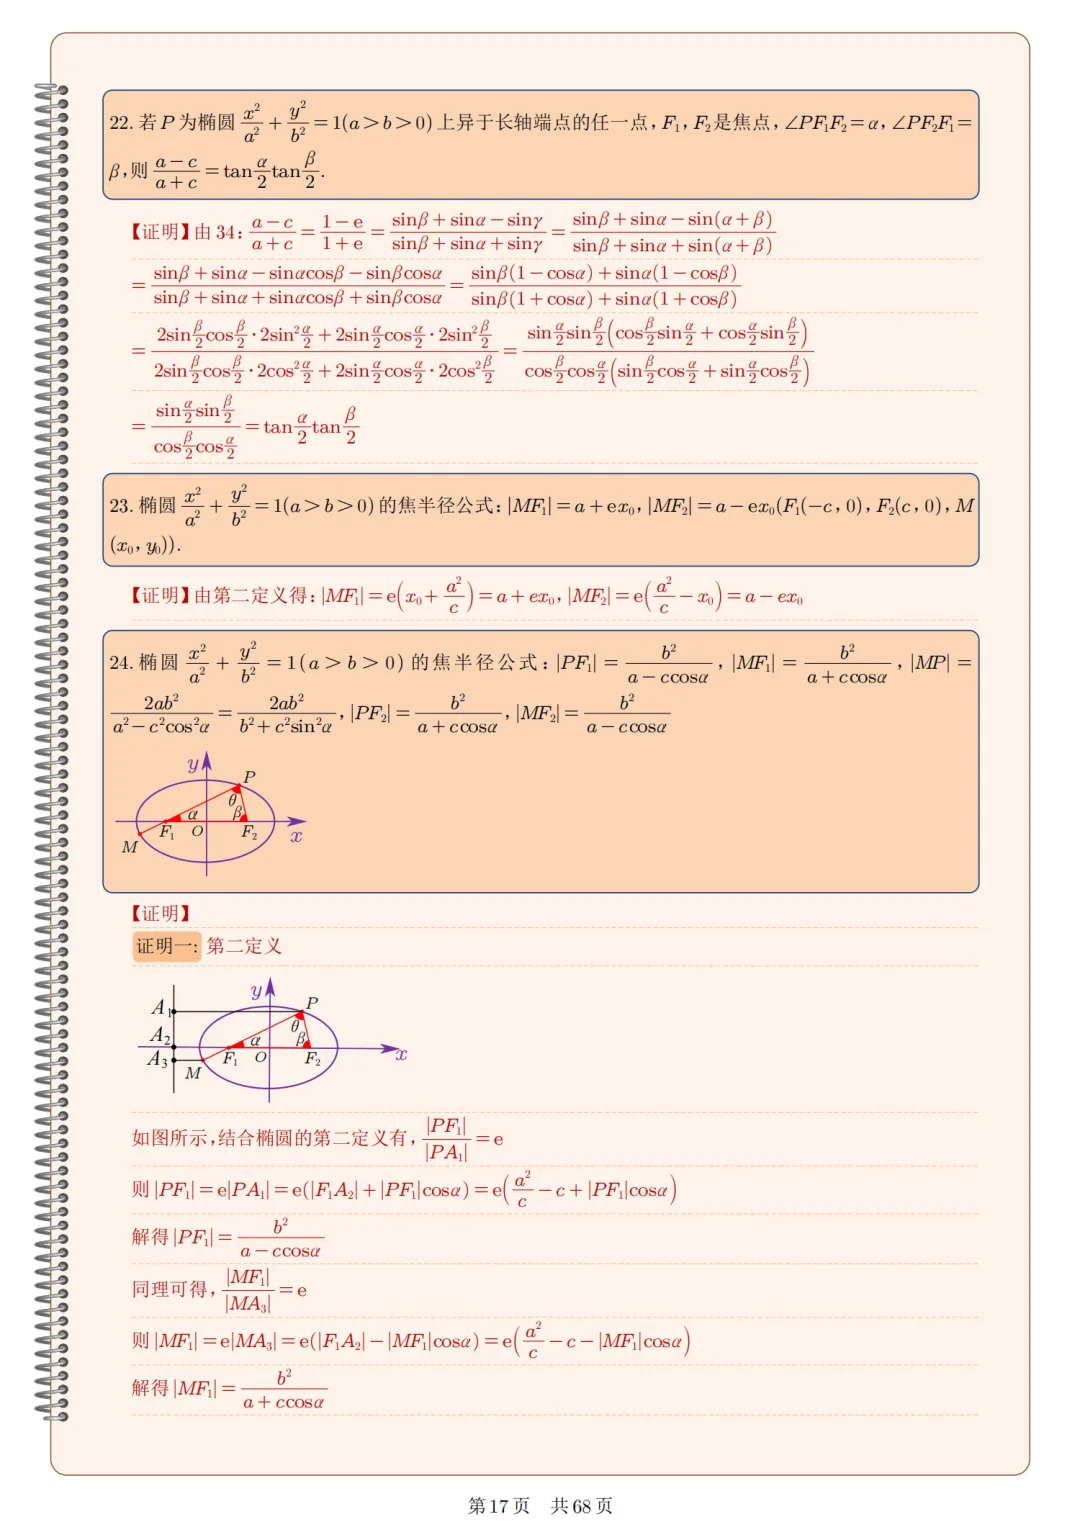 22. 若P为椭圆 x²/a² + y²/b² = 1(a>b>0)上异于长轴端点的任一点,F₁,F₂是焦点,∠PF₁F₂=α,∠PF₂F₁=
β,则 (a−c)/(a+c) = tan(α/2)tan(β/2).
【证明】由34: (a−c)/(a+c) = (1−e)/(1+e) = (sinβ+sinα−sinγ)/(sinβ+sinα+sinγ) = (sinβ+sinα−sin(α+β))/(sinβ+sinα+sin(α+β))
= (sinβ+sinα−sinαcosβ−sinβcosα)/(sinβ+sinα+sinαcosβ+sinβcosα) = (sinβ(1−cosα)+sinα(1−cosβ))/(sinβ(1+cosα)+sinα(1+cosβ))
= (2sin(β/2)cos(β/2)·2sin²(α/2)+2sin(α/2)cos(α/2)·2sin²(β/2))/(2sin(β/2)cos(β/2)·2cos²(α/2)+2sin(α/2)cos(α/2)·2cos²(β/2)) = (sin(α/2)sin(β/2)(cos(β/2)sin(α/2)+cos(α/2)sin(β/2)))/(cos(β/2)cos(α/2)(sin(β/2)cos(α/2)+sin(α/2)cos(β/2)))
= (sin(α/2)sin(β/2))/(cos(β/2)cos(α/2)) = tan(α/2)tan(β/2)
23. 椭圆 x²/a² + y²/b² = 1(a>b>0)的焦半径公式:|MF₁|=a+ex₀,|MF₂|=a−ex₀(F₁(−c,0),F₂(c,0),M
(x₀,y₀)).
【证明】由第二定义得:|MF₁|=e(x₀+a²/c)=a+ex₀,|MF₂|=e(a²/c−x₀)=a−ex₀
24. 椭圆 x²/a² + y²/b² = 1(a>b>0)的焦半径公式:|PF₁| = b²/(a−ccosα),|MF₁| = b²/(a+ccosα),|MP| =
2ab²/(a²−c²cos²α) = 2ab²/(b²+c²sin²α),|PF₂| = b²/(a+ccosα),|MF₂| = b²/(a−ccosα)
y
P
θ
α
β
F₁
O
F₂
x
M
【证明】
证明一: 第二定义
y
P
A₁
θ
A₂
α
β
x
A₃
F₁
O
F₂
M
如图所示,结合椭圆的第二定义有,|PF₁|/|PA₁| = e
则|PF₁|=e|PA₁|=e(|F₁A₂|+|PF₁|cosα)=e(a²/c−c+|PF₁|cosα)
解得|PF₁|= b²/(a−ccosα)
同理可得,|MF₁|/|MA₃| = e
则|MF₁|=e|MA₃|=e(|F₁A₂|−|MF₁|cosα)=e(a²/c−c−|MF₁|cosα)
解得|MF₁|= b²/(a+ccosα)
第17页 共68页